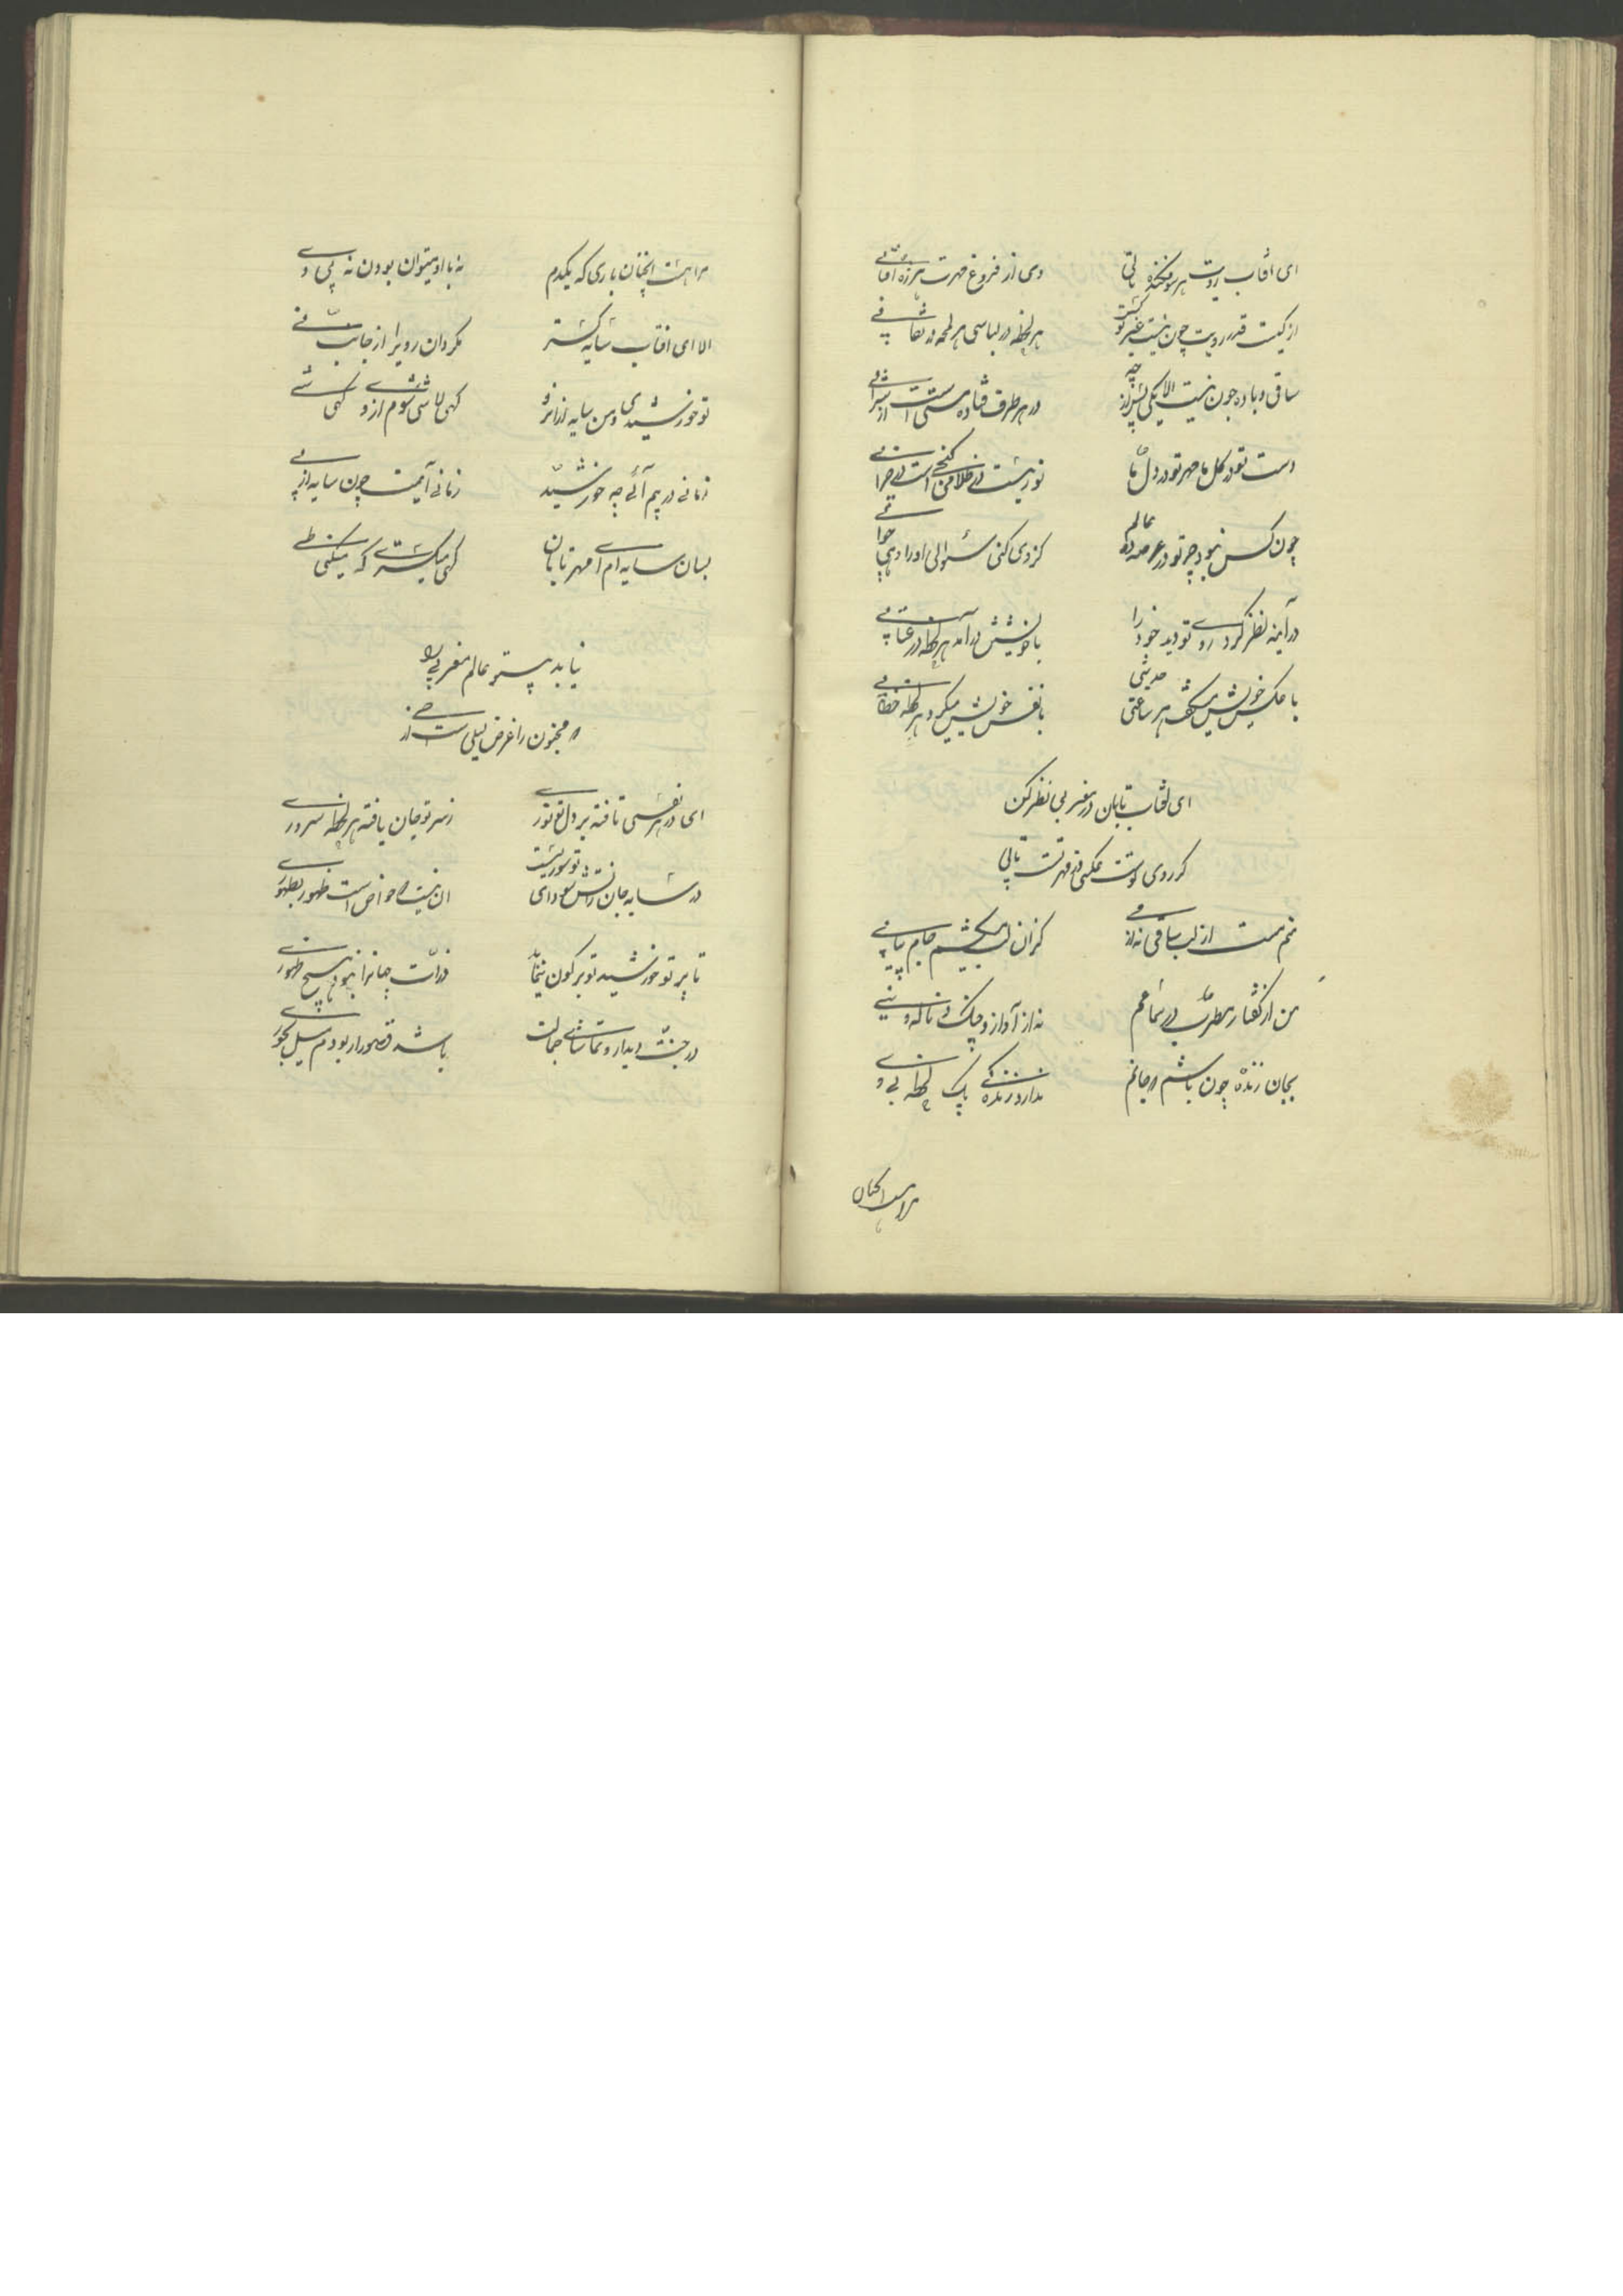 ای آفتاب رویت هر سو فکنده تابی
وی از فروغ مهرت هر ذره آفتابی
از کیست قدر رویت چون نیست غیر تو
هر لحظه در لباسی هر لمحه در نقابی
ساقی و باده چون نیست الا یکی
در هر طرف فتاده مستی است از شرابی
دست تو در گل ما مهر تو در دل ما
نوریست در ظلامی گنجی است در خرابی
چون کس نبود جز تو در عرصه دو عالم
کزوی کنی سئوالی او را دهی جوابی
در آینه نظر کرد روی تو دید خود را
با خویشتن درآمد هر لحظه در عتابی
با عکس خویش میگفت هر ساعتی حدیثی
با نفس خویش میکرد هر لحظه خطابی
ای آفتاب تابان در مغربی نظر کن
کز روی تست عکسی وز مهر تست تابی
منم مست از لب ساقی نه از می
کزان لب میکشم جام پیاپی
من از گفتار مطرب در سماعم
نه از آواز چنگ و ناله نی
بجان زنده چون باشم که جانم
ندارد زندگی یک لحظه بی وی
مرا هست آنچنان
مرا هست آنچنان یاری که یکدم
نه با او میتوان بودن نه بی وی
الا ای آفتاب سایه گستر
مگردان روی را از جانب فی
تو خورشیدی و من سایه از آنرو
گهی لاشی شوم از تو گهی شی
زمانی در پیم آئی چه خورشید
زمانی آیمت چون سایه از پی
بسان سایه ام ای مهر تابان
گهی میگستری گه میکنی طی
نیابد پیر تو عالم مغربی را
که مجنون را غرض لیلی است از حی
ای در هر نفسی تافته بر دل ز تو نوری
ز سر تو جان یافته هر لحظه سروری
تا پرتو خورشید تو بر کون نیفتاد
ذرات جهانرا نبود هیچ ظهوری
در جنت دیدار و تماشای جمالت
باشد قصور ار بودم میل بحوری